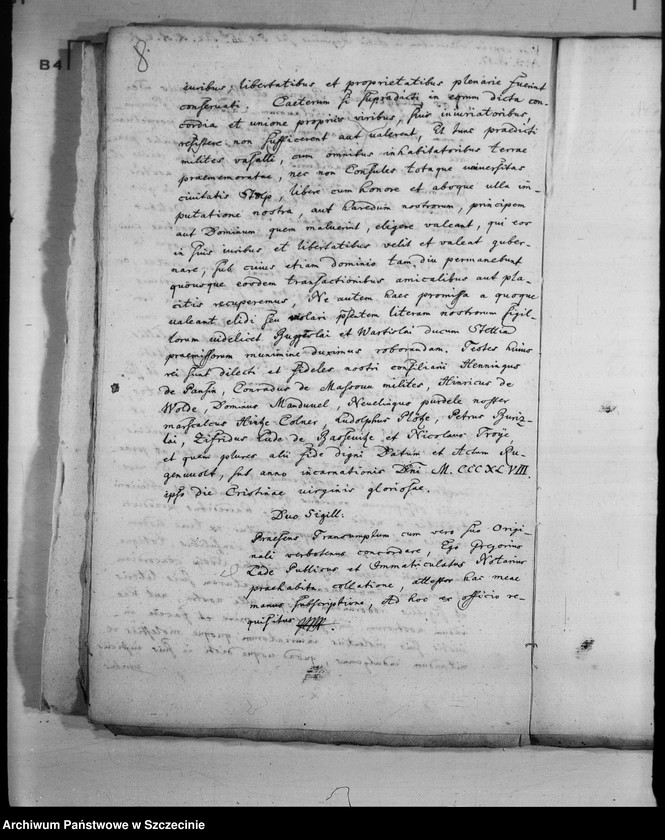 8
B4
iuribus, libertatibus et proprietatibus plenarie fuerint
conservati. Caeterum si supradicti in eorum dicta con-
cordia et unione propriis viribus, suis iniuriatoribus,
resistere non sufficerent aut valerent, Et tunc praedicti
milites vasalli, cum omnibus inhabitatoribus terrae
praememoratae, nec non Consules totaque universitas
civitatis Stolp, libere cum honore et absque ulla im-
putatione nostra, aut haredum nostrorum, principem
aut Dominum quem maluerint, eligere valeant, qui eos
in suis iuribus et libertatibus velit et valeat guber-
nare, sub cuius etiam dominio tam diu permanebunt
quousque eosdem transactionibus amicalibus aut pla-
citis recuperemus, Ne autem haec promissa a quoque
valeant elidi seu violari psentem literam nostrorum sigil-
lorum videlicet Buggeslai et Wartislai ducum Stettin
praemissorum munimine duximus roborandam. Testes huius
rei sunt dilecti et fideles nostri consiliarii Henningus
de Pansin, Conradus de Massouu milites, Hinricus de
Wolde, Dominus Manduuel, Neuelingus purdele noster
marscalcus Hintze Colner Ludolphus Plötze, Petrus Buriz-
lai, Zifridus Lude de Bassevitze et Nicolaus Troye
et quam plures alii fide digni Datum et Actum Ru-
genuuolt, sub anno incarnationis Dni M. CCC XL VIII.
ipso die Cristinae virginis gloriosae.
Duo Sigill:
Praesens Transumptum cum vero suo Origi-
nali verbotenus concordare, Ego Gregorius
Lade Publicus et Immatriculatus Notarius
praehabita collatione, attestor hac meae
manus subscriptione, Ad hoc ex officio re-
quisitus
Archiwum Państwowe w Szczecinie